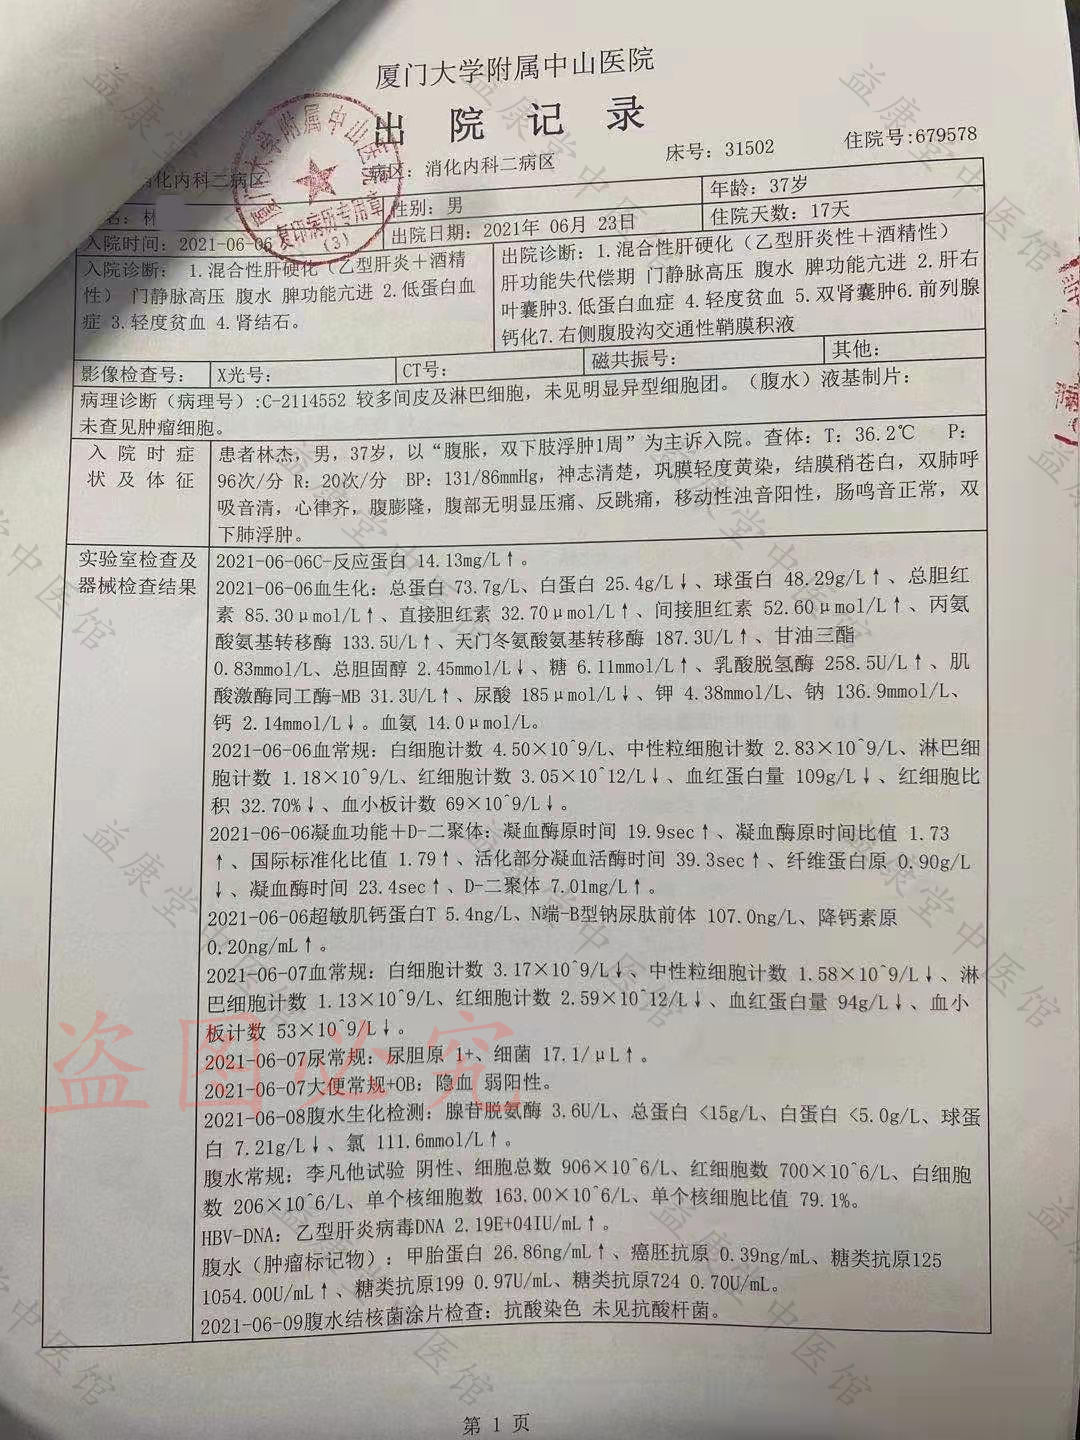 厦门大学附属中山医院
出 院 记 录
消化内科二病区 病区：消化内科二病区 床号：31502 住院号：679578
名：林 性别：男 年龄：37岁
入院时间：2021-06-06 出院日期：2021年 06月 23日 住院天数：17天
入院诊断： 1.混合性肝硬化（乙型肝炎＋酒精性） 门静脉高压 腹水 脾功能亢进 2.低蛋白血症 3.轻度贫血 4.肾结石。
出院诊断：1.混合性肝硬化（乙型肝炎性＋酒精性）
肝功能失代偿期 门静脉高压 腹水 脾功能亢进 2.肝右
叶囊肿3.低蛋白血症 4.轻度贫血 5.双肾囊肿6.前列腺
钙化7.右侧腹股沟交通性鞘膜积液
影像检查号： X光号： CT号： 磁共振号： 其他：
病理诊断（病理号）:C-2114552 较多间皮及淋巴细胞，未见明显异型细胞团。（腹水）液基制片：
未查见肿瘤细胞。
入 院 时 症
状 及 体 征
患者林杰，男，37岁，以“腹胀，双下肢浮肿1周”为主诉入院。查体：T：36.2℃ P：
96次/分 R：20次/分 BP：131/86mmHg，神志清楚，巩膜轻度黄染，结膜稍苍白，双肺呼
吸音清，心律齐，腹膨隆，腹部无明显压痛、反跳痛，移动性浊音阳性，肠鸣音正常，双
下肺浮肿。
实验室检查及
器械检查结果
2021-06-06C-反应蛋白 14.13mg/L↑。
2021-06-06血生化：总蛋白 73.7g/L、白蛋白 25.4g/L↓、球蛋白 48.29g/L↑、总胆红
素 85.30μmol/L↑、直接胆红素 32.70μmol/L↑、间接胆红素 52.60μmol/L↑、丙氨
酸氨基转移酶 133.5U/L↑、天门冬氨酸氨基转移酶 187.3U/L↑、甘油三酯
0.83mmol/L、总胆固醇 2.45mmol/L↓、糖 6.11mmol/L↑、乳酸脱氢酶 258.5U/L↑、肌
酸激酶同工酶-MB 31.3U/L↑、尿酸 185μmol/L↓、钾 4.38mmol/L、钠 136.9mmol/L、
钙 2.14mmol/L↓。血氨 14.0μmol/L。
2021-06-06血常规：白细胞计数 4.50×10^9/L、中性粒细胞计数 2.83×10^9/L、淋巴细
胞计数 1.18×10^9/L、红细胞计数 3.05×10^12/L↓、血红蛋白量 109g/L↓、红细胞比
积 32.70%↓、血小板计数 69×10^9/L↓。
2021-06-06凝血功能＋D-二聚体：凝血酶原时间 19.9sec↑、凝血酶原时间比值 1.73
↑、国际标准化比值 1.79↑、活化部分凝血活酶时间 39.3sec↑、纤维蛋白原 0.90g/L
↓、凝血酶时间 23.4sec↑、D-二聚体 7.01mg/L↑。
2021-06-06超敏肌钙蛋白T 5.4ng/L、N端-B型钠尿肽前体 107.0ng/L、降钙素原
0.20ng/mL↑。
2021-06-07血常规：白细胞计数 3.17×10^9/L↓、中性粒细胞计数 1.58×10^9/L↓、淋
巴细胞计数 1.13×10^9/L、红细胞计数 2.59×10^12/L↓、血红蛋白量 94g/L↓、血小
板计数 53×10^9/L↓。
2021-06-07尿常规：尿胆原 1+、细菌 17.1/μL↑。
2021-06-07大便常规+OB：隐血 弱阳性。
2021-06-08腹水生化检测：腺苷脱氨酶 3.6U/L、总蛋白 <15g/L、白蛋白 <5.0g/L、球蛋
白 7.21g/L↓、氯 111.6mmol/L↑。
腹水常规：李凡他试验 阴性、细胞总数 906×10^6/L、红细胞数 700×10^6/L、白细胞
数 206×10^6/L、单个核细胞数 163.00×10^6/L、单个核细胞比值 79.1%。
HBV-DNA：乙型肝炎病毒DNA 2.19E+04IU/mL↑。
腹水（肿瘤标记物）：甲胎蛋白 26.86ng/mL↑、癌胚抗原 0.39ng/mL、糖类抗原125
1054.00U/mL↑、糖类抗原199 0.97U/mL、糖类抗原724 0.70U/mL。
2021-06-09腹水结核菌涂片检查：抗酸染色 未见抗酸杆菌。
第 1 页
厦门大学附属中山医院
复印病历专用章
(3)
盗图必究
益康堂中医馆